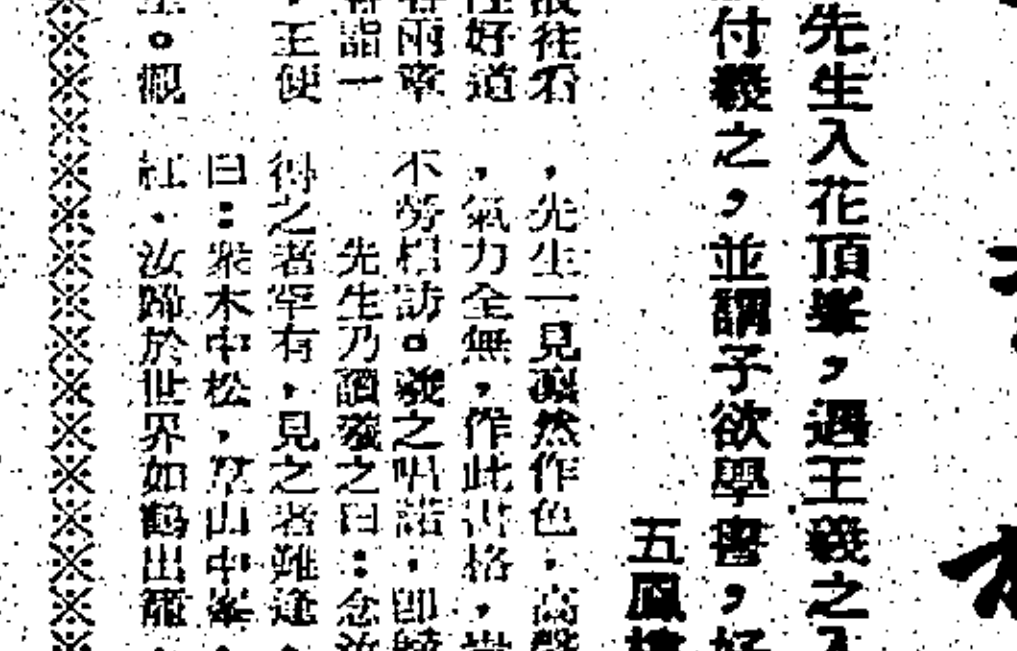 先生入花頂峯，遇王羲之入
付羲之，並謂子欲學書，好
五鳳樓
往看
，先生一見黯然作色，高聲
性好道
，氣力全無，作此書格，豈
兩章
不勞相訪。羲之唱諾，即歸
詣一
先生乃讚羲之曰：念汝
，王便
得之者罕有，見之者難逢，
曰：衆木中松，羣山中峯，
。觀
紅，汝歸於世界如鶴出籠，